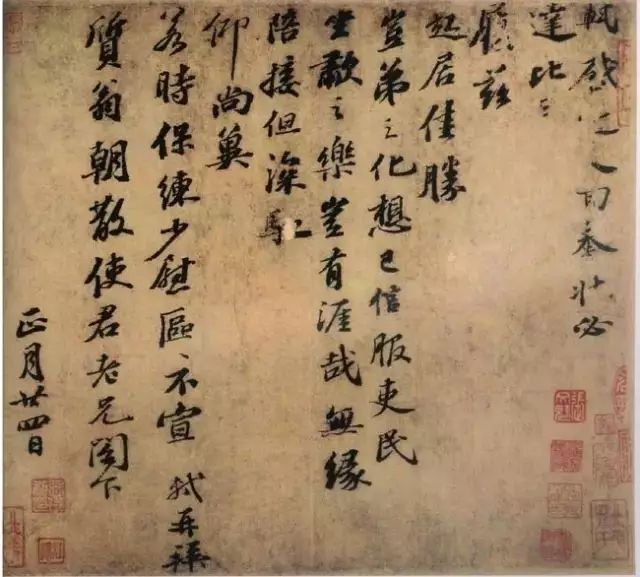 軾啓近人回奉狀必
達比日
履茲
起居佳勝
豈弟之化想已信服吏民
坐歡之樂豈有涯哉無緣
陪接但深馳
仰尚冀
若時保練少慰區區不宣 軾再拜
質翁朝散使君老兄閣下
正月廿四日